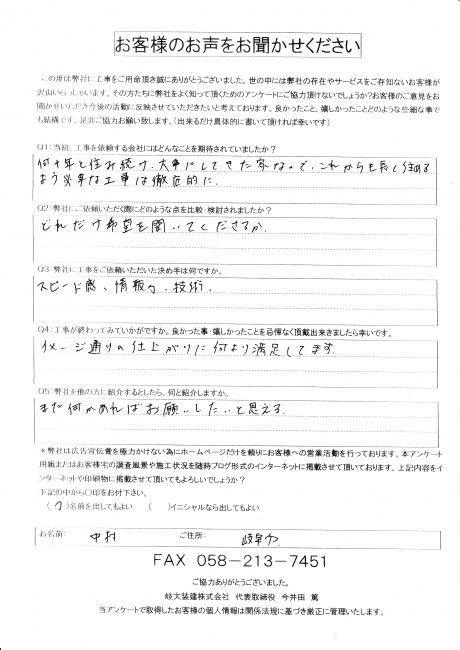 お客様のお声をお聞かせください
この度は弊社に工事をご用命頂き誠にありがとうございました。世の中には弊社の存在やサービスをご存知ないお客様が
沢山いらっしゃいます。その方たちに弊社をよく知って頂くためのアンケートにご協力頂けないでしょうか?お客様のご意見をお
聞かせいただき今後の活動に反映させていただきたいと考えております。良かったこと、嬉しかったことどのような些細な事で
も結構です。是非ご協力お願い致します。(出来るだけ具体的に書いて頂ければ幸いです)
Q1:当初、工事を依頼する会社にはどんなことを期待されていましたか?
何十年と住み続け、大事にしてきた家なので、これからも長く住める
よう必要な工事は徹底的に.
Q2:弊社にご依頼いただく際にどのような点を比較・検討されましたか?
どれだけ希望を聞いてくださるか.
Q3:弊社に工事をご依頼いただいた決め手は何ですか。
スピード感、情報力、技術.
Q4:工事が終わってみていかがですか。良かった事・嬉しかったことを忌憚なく頂戴出来きましたら幸いです。
イメージ通りの仕上がりに何より満足してます.
Q5:弊社を他の方に紹介するとしたら、何と紹介しますか。
また何かあればお願いしたいと思える.
*弊社は広告宣伝費を極力かけない為にホームページだけを頼りにお客様への営業活動を行っております。本アンケート
用紙またはお客様宅の調査風景や施工状況を随時ブログ形式のインターネットに掲載させて頂いております。上記内容をイ
ンターネットや印刷物に掲載させて頂いてもよろしいでしょうか?
下記の中から〇印をお付下さい。
( )名前を出してもよい ( )イニシャルなら出してもよい
お名前: 中村 ご住所: 岐阜市
FAX 058-213-7451
ご協力ありがとうございました。
岐大装建株式会社 代表取締役 今井田 篤
当アンケートで取得したお客様の個人情報は関係法規に基づき厳正に管理いたします。